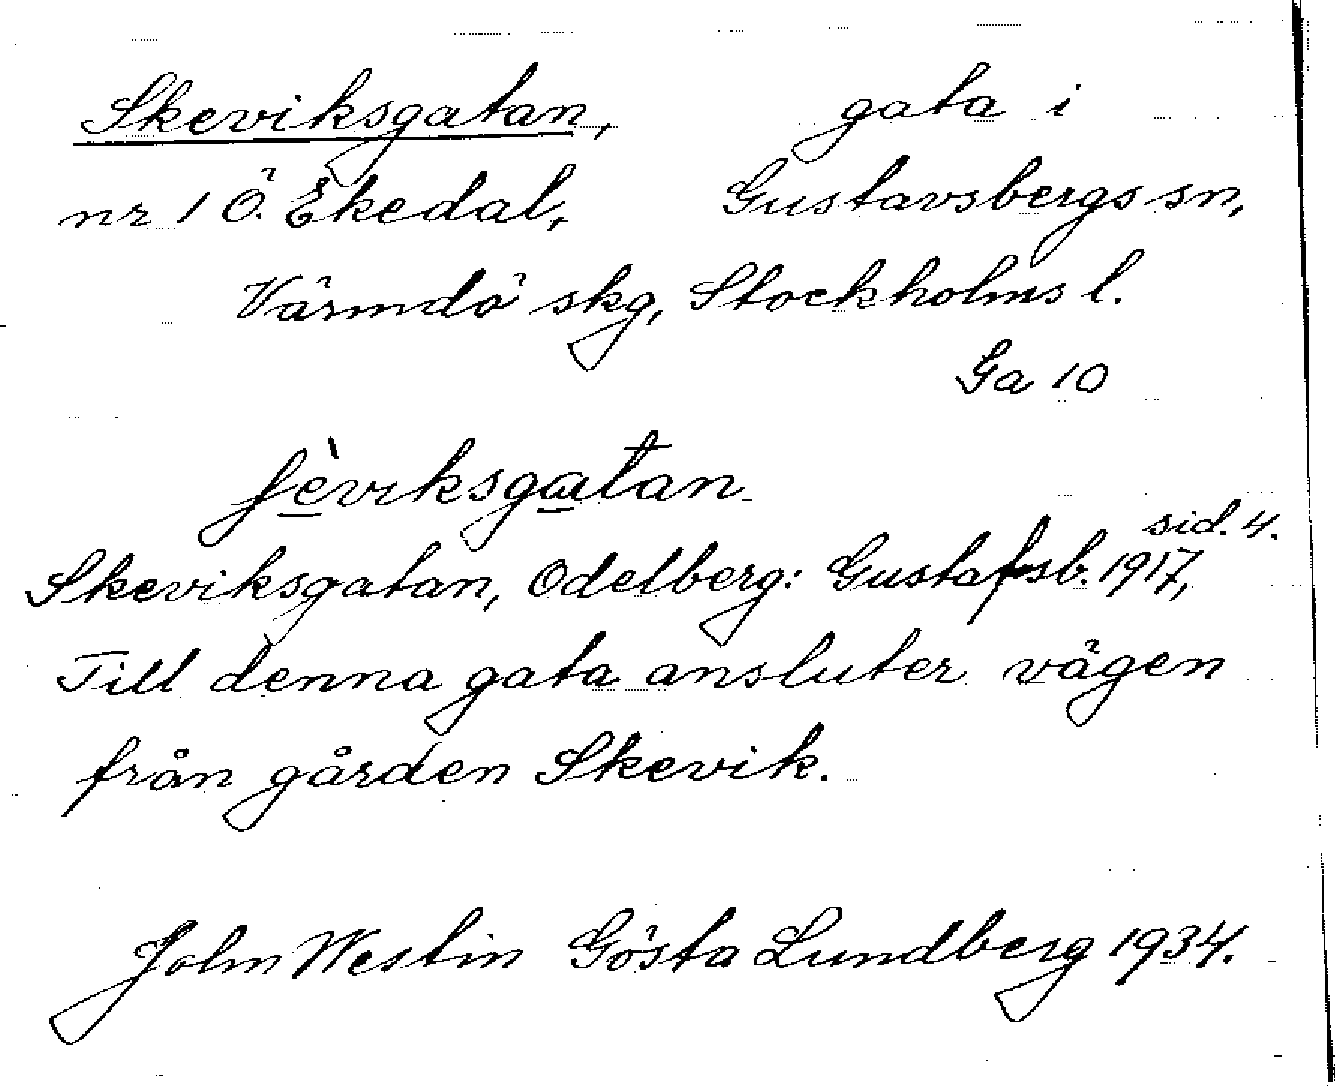 Skeviksgatan, gata i
nr 1 Ö. Ekedal, Gustavsbergs sn,
Värmdö skg, Stockholms l.
Ga 10
ʃèviksgatan
sid. 4.
Skeviksgatan, Odelberg: Gustafsb. 1917,
Till denna gata ansluter vägen
från gården Skevik.
John Westin Gösta Lundberg 1934.